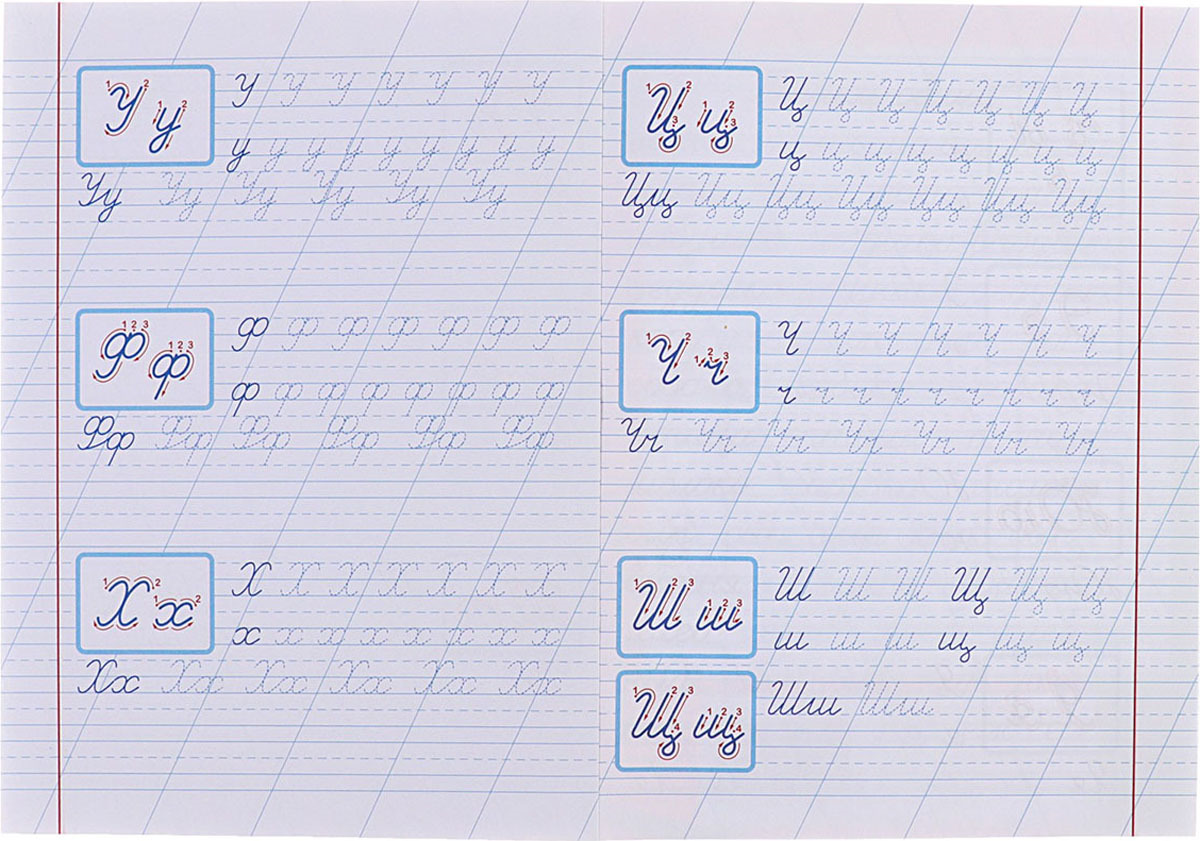 1 2 1 2
У у
У У У У У У У
у у у у у у у у у
Уу Уу Уу Уу Уу Уу
1 2 3 1 2 3
Ф ф
Ф Ф Ф Ф Ф Ф Ф
ф ф ф ф ф ф ф ф
Фф Фф Фф Фф Фф Фф
1 2 1 2
Х х
Х Х Х Х Х Х Х
х х х х х х х х
Хх Хх Хх Хх Хх Хх
1 2 3 1 2 3
Ц ц
Ц Ц Ц Ц Ц Ц Ц
ц ц ц ц ц ц ц ц
Цц Цц Цц Цц Цц Цц Цц
1 2 1 2 3
Ч ч
Ч Ч Ч Ч Ч Ч Ч
ч ч ч ч ч ч ч ч ч
Чч Чч Чч Чч Чч Чч Чч
1 2 3 1 2 3
Ш ш
Ш Ш Ш Щ Щ Щ
ш ш ш щ щ щ
1 2 3 4 1 2 3 4
Щ щ
Шш Шш